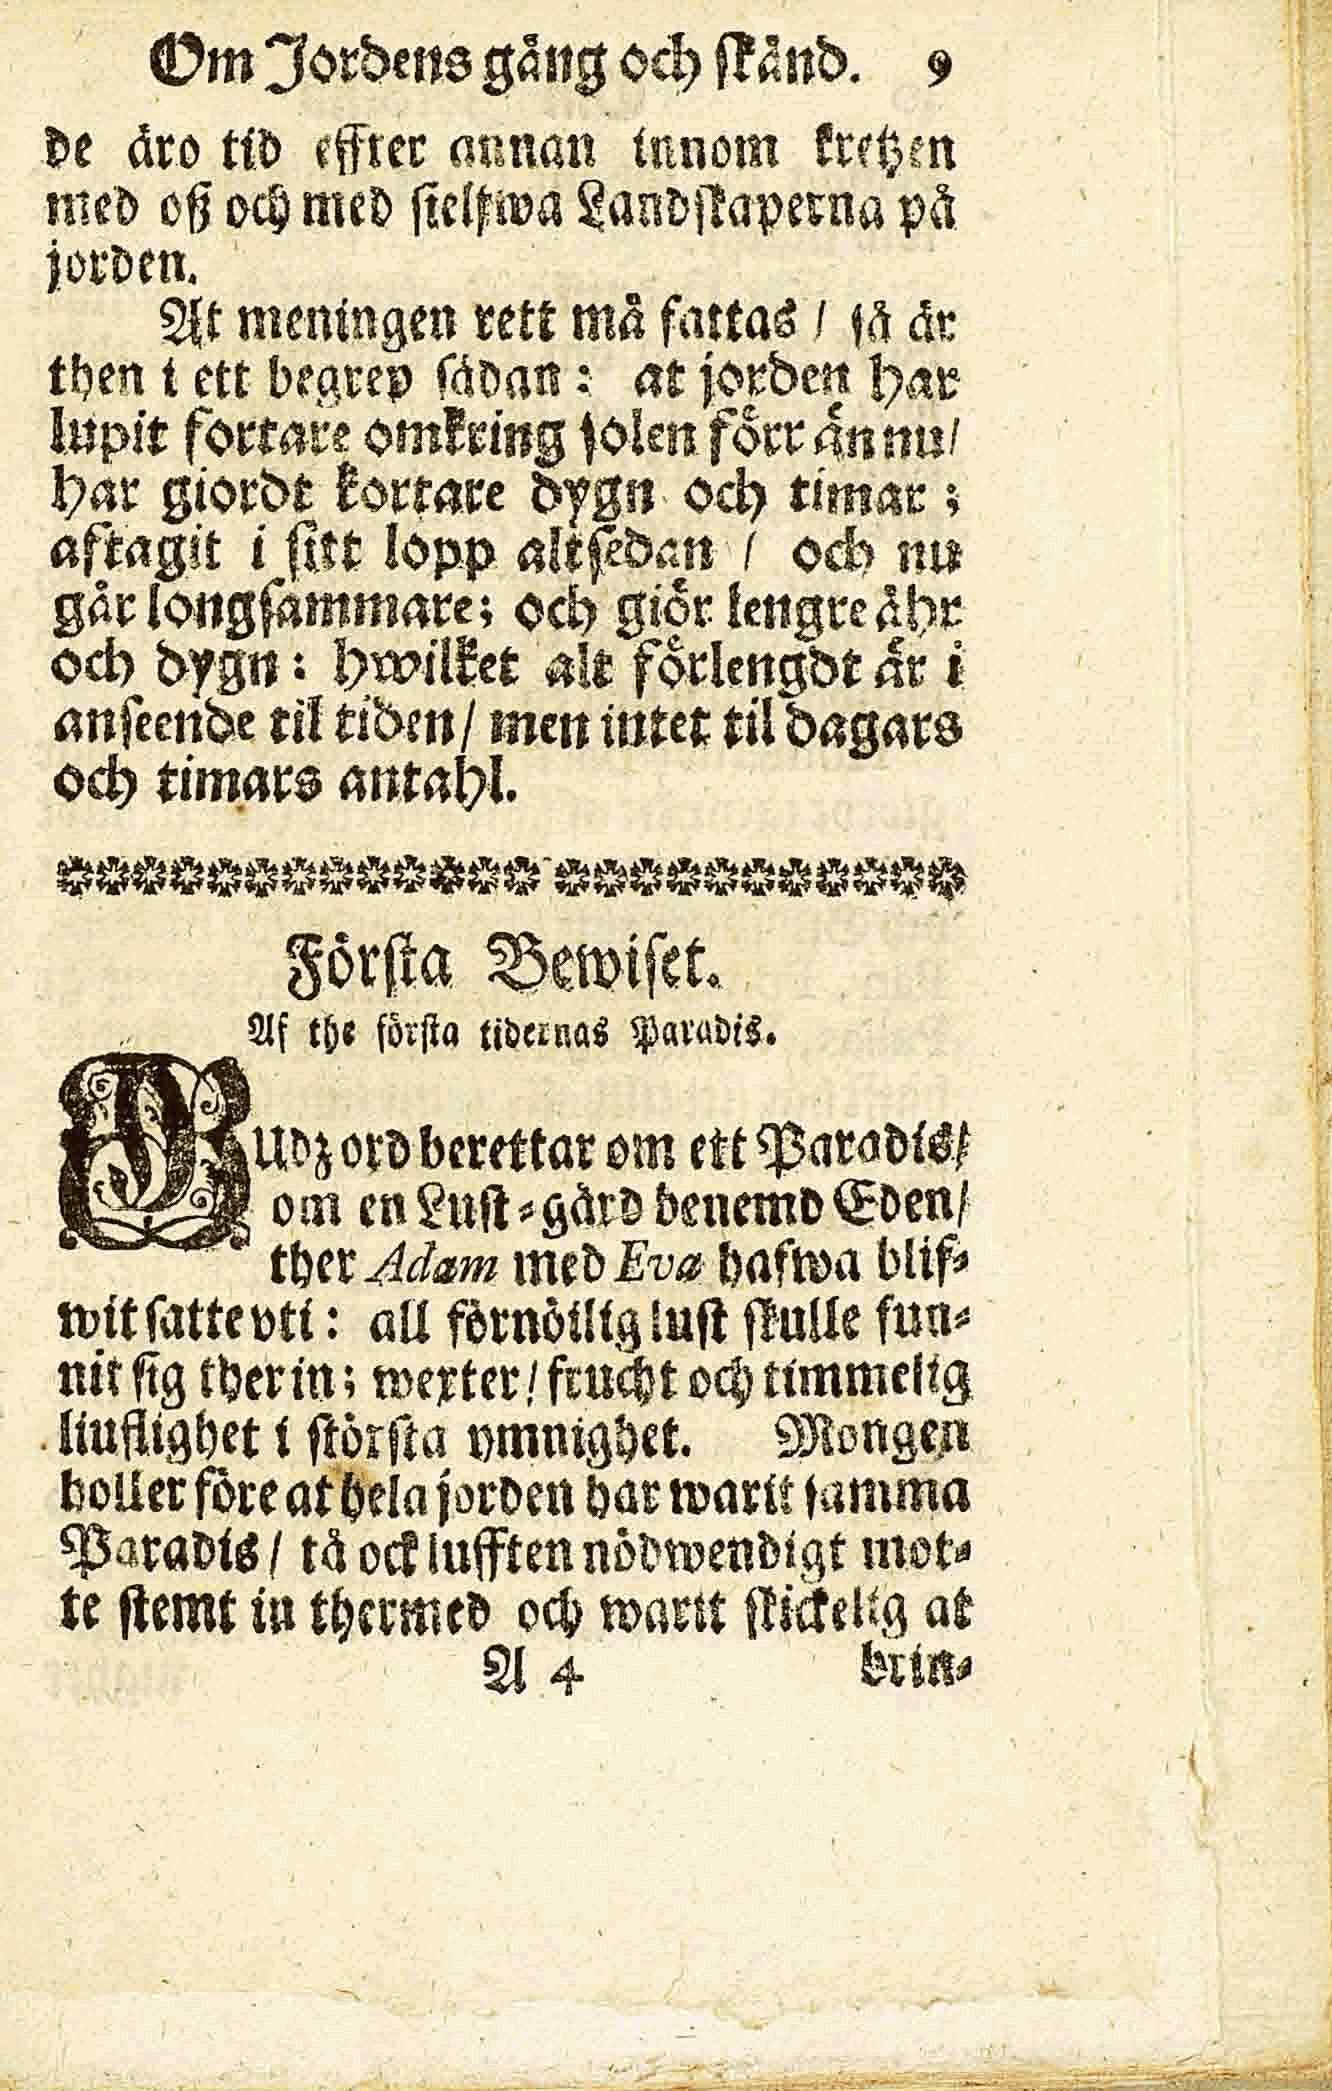 Om Jordens gång och skånd. 9
de äro tid effter annan innom kretzen
med oß och med sielfwa Landskaperna på
jorden.
At meningen rett må fattas / så är
then i ett begrep sådan: at jorden har
lupit fortare omkring solen förr än nu/
har giordt kortare dygn och timar;
aftagit i sitt lopp altsedan / och nu
går longsammare; och giör lengre åhr
och dygn: hwilket alt förlengdt är i
anseende til tiden / men intet til dagars
och timars antahl.
Första Bewiset.
Af the första tidernas Paradis.
GUdz ord berettar om ett Paradis/
om en Lust-gård benemd Eden/
ther Adam med Eva hafwa blif-
wit satte vti: all förnöilig lust skulle fun-
nit sig ther in; wexter / frucht och timmelig
liuflighet i största ymnighet. Mongen
holler före at hela jorden har warit samma
Paradis / tå ock lufften nödwendigt mot-
te stemt in thermed och warit skickelig at
A 4 brin-